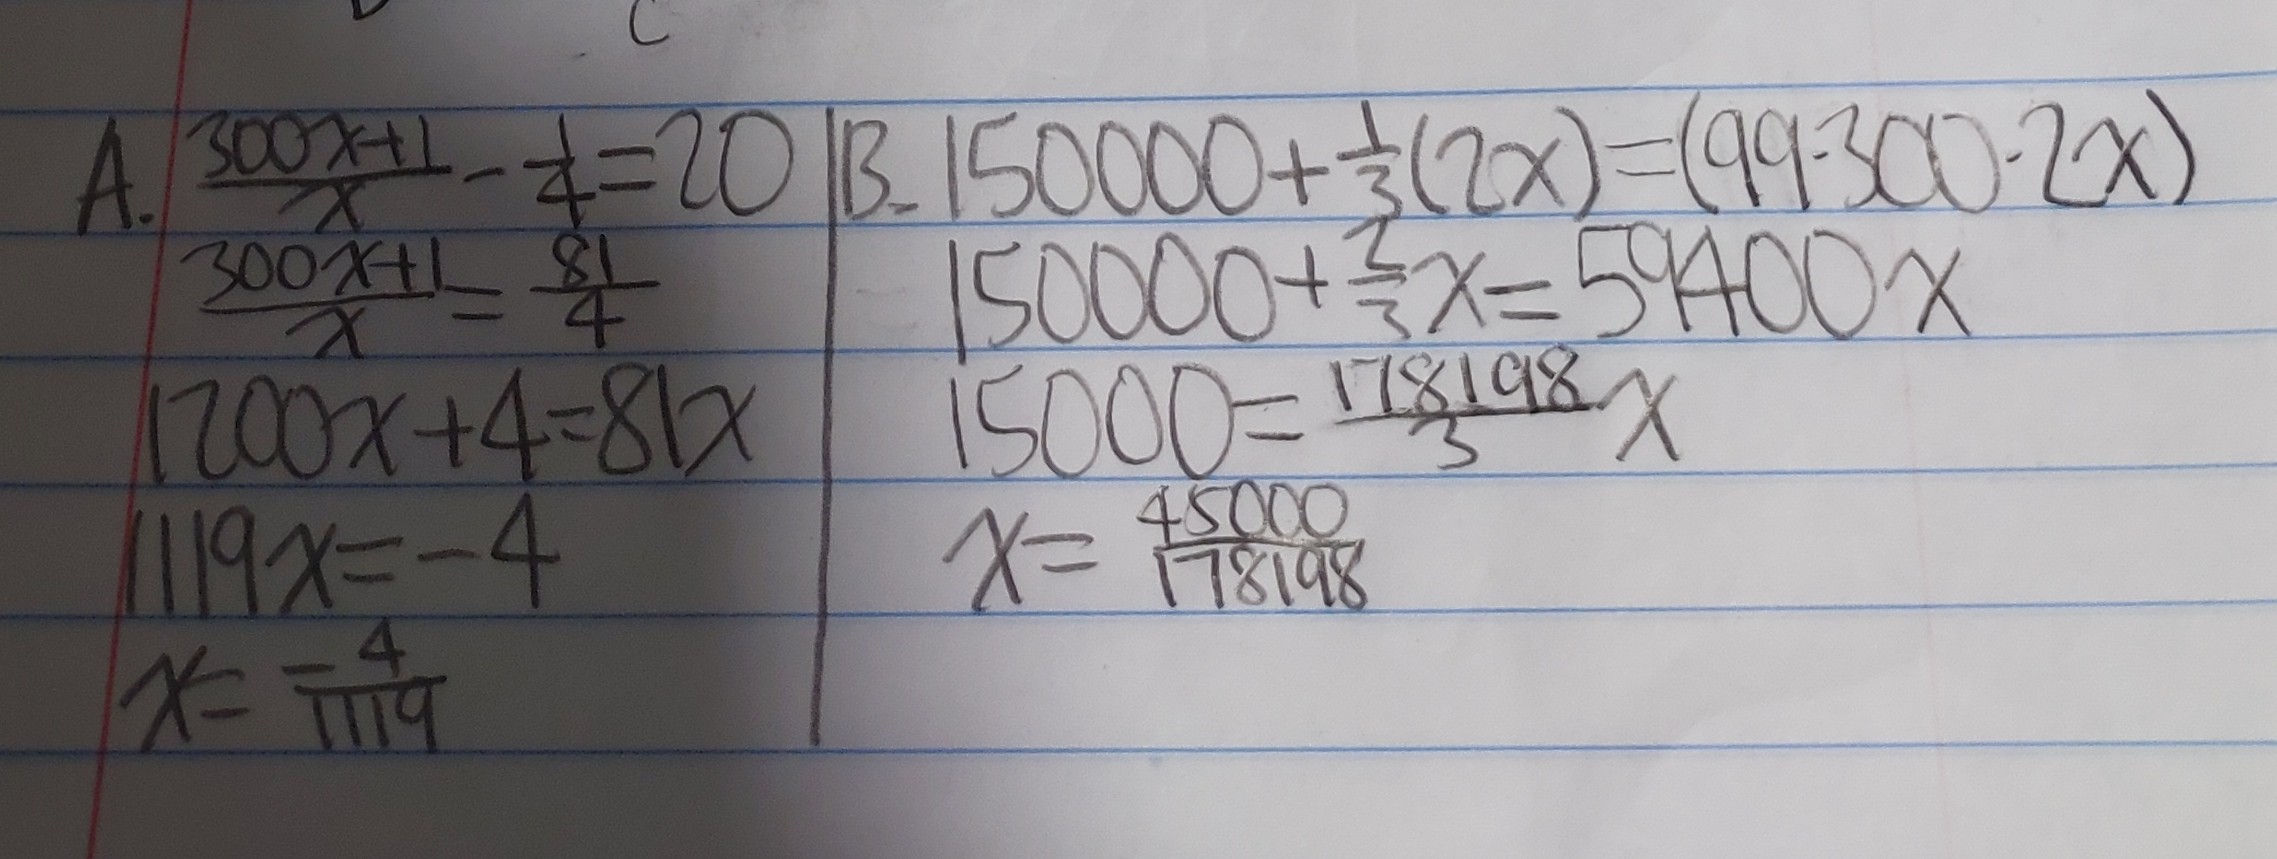 C
A. (300x+1)/x - 1/4 = 20
(300x+1)/x = 81/4
1200x+4=81x
1119x=-4
x= -4/1119
B. 150000+1/3(2x)=(99·300·2x)
150000+2/3x=59400x
15000=178198/3 x
x= 45000/178198